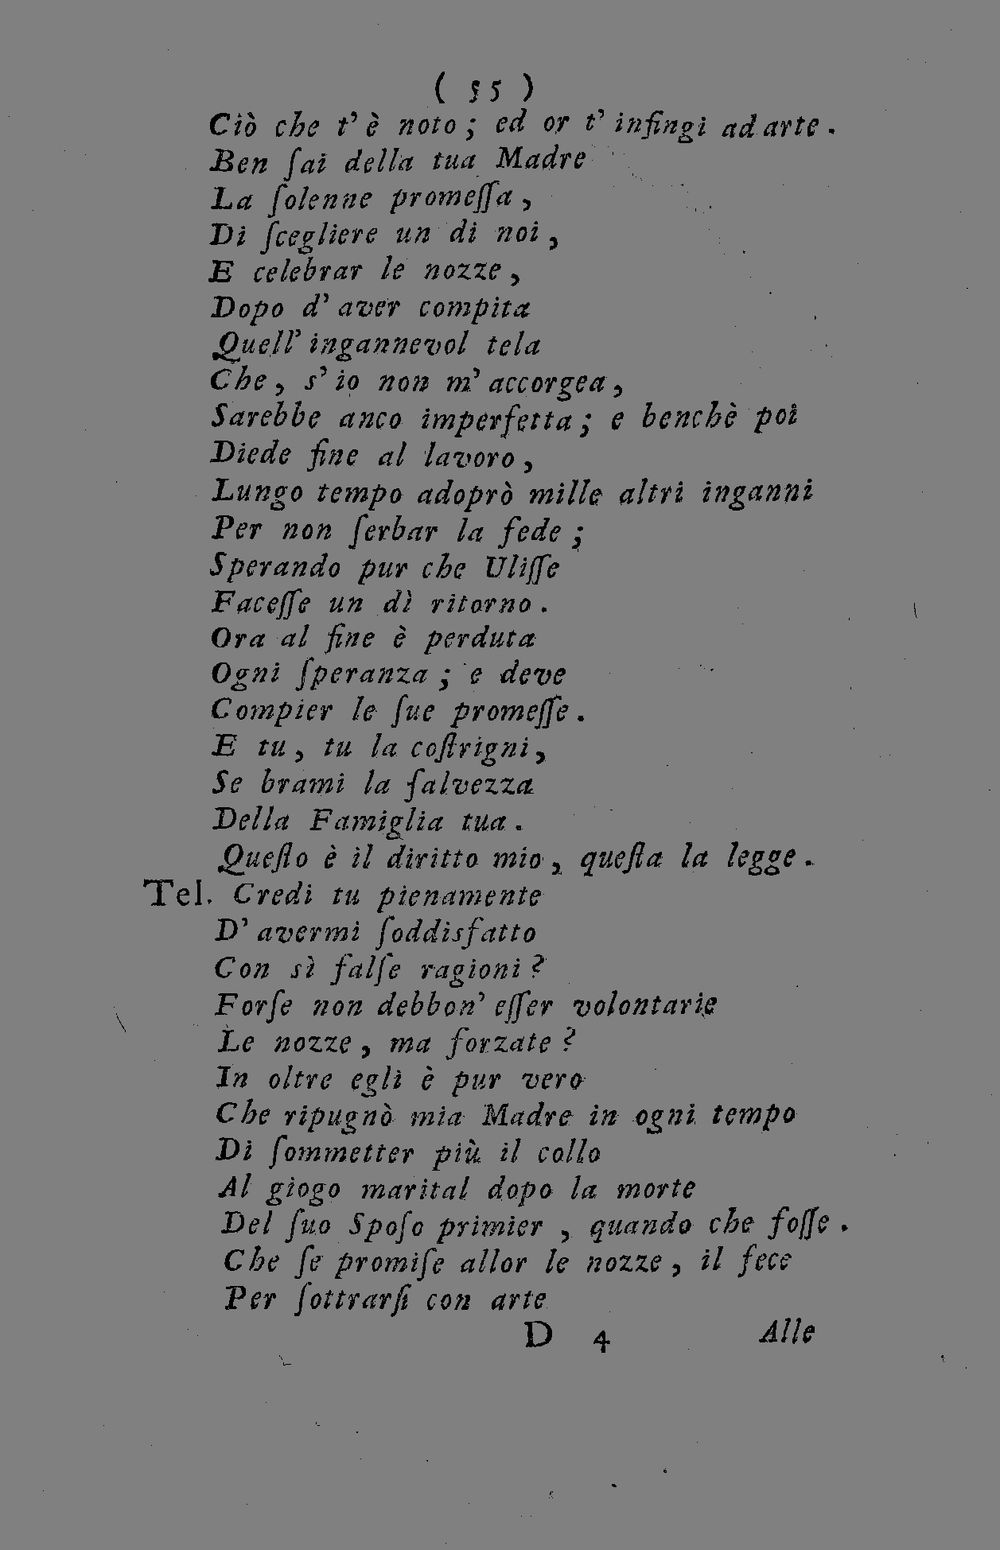 ( 55 )
Ciò che t' è noto ; ed or t' infingi ad arte .
Ben ſai della tua Madre
La ſolenne promeſſa ,
Di ſcegliere un di noi ,
E celebrar le nozze ,
Dopo d' aver compita
Quell' ingannevol tela
Che , s' io non m' accorgea ,
Sarebbe anco imperfetta ; e benchè poi
Diede fine al lavoro ,
Lungo tempo adoprò mille altri inganni
Per non ſerbar la fede ;
Sperando pur che Uliſſe
Faceſſe un dì ritorno .
Ora al fine è perduta
Ogni ſperanza ; e deve
Compier le ſue promeſſe .
E tu , tu la coſtrigni ,
Se brami la ſalvezza
Della Famiglia tua .
Queſto è il diritto mio , queſta la legge .
Tel. Credi tu pienamente
D' avermi ſoddisfatto
Con sì falſe ragioni ?
Forſe non debbon' eſſer volontarie
Le nozze , ma forzate ?
In oltre egli è pur vero
Che ripugnò mia Madre in ogni tempo
Di ſommetter più il collo
Al giogo marital dopo la morte
Del ſuo Spoſo primier , quando che foſſe .
Che ſe promiſe allor le nozze , il fece
Per ſottrarſi con arte
D 4 Alle